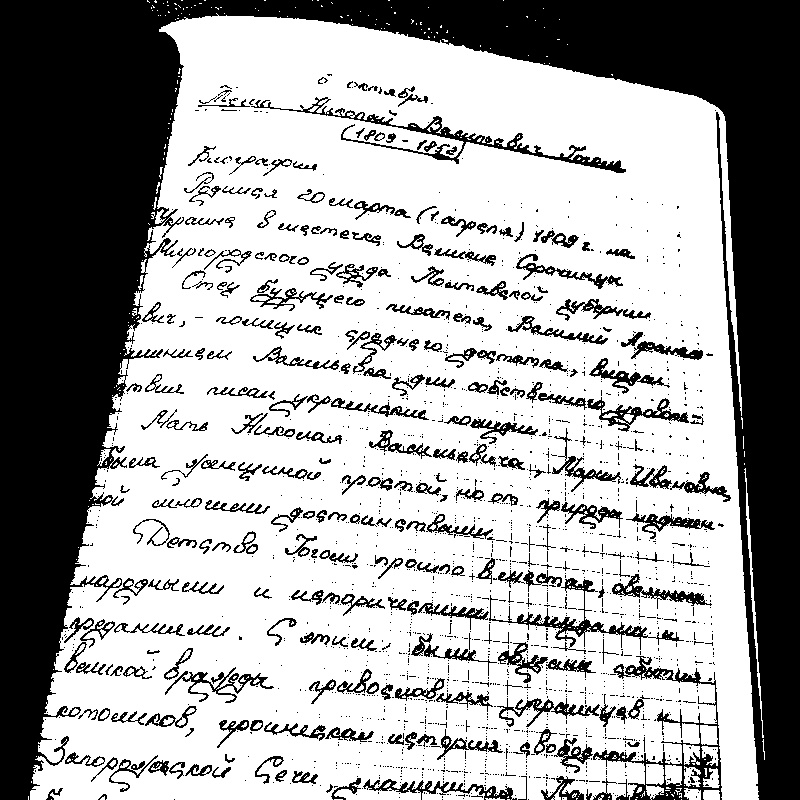 6 октября.
Тема Николай Васильевич Гоголь
(1809 - 1852)
Биография
Родился 20 марта (1 апреля) 1809 г. на
Украине в местечке Великие Сорочинцы
Миргородского уезда Полтавской губернии
Отец будущего писателя, Василий Афанась-
евич, - помещик среднего достатка, владел
имением Васильевка, для собственного удоволь-
ствия писал украинские комедии.
Мать Николая Васильевича, Мария Ивановна,
была женщиной простой, но от природы наделен-
ной многими достоинствами
Детство Гоголя прошло в местах, овеянных
народными и историческими легендами и
преданиями. С этим были связаны события
великой вражды православных украинцев и
католиков, героическая история свободной
Запорожской Сечи, знаменитая